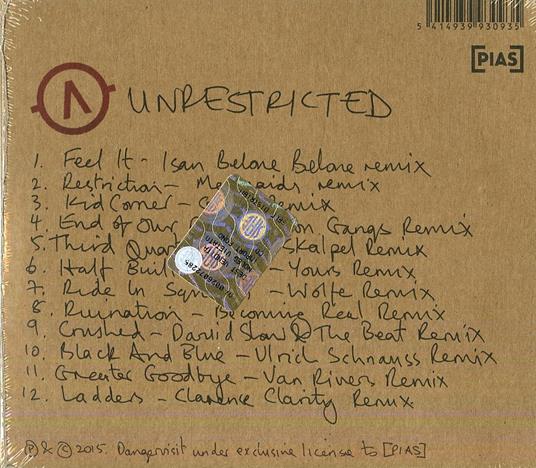 5 414939 930935
[PIAS]
UNRESTRICTED
1. Feel It - Isan Belone Belone remix
2. Restriction - Me aids remix
3. Kid Corner - Remix
4. End of Our on, Gangs Remix
5. Third Quar Skalpel Remix
6. Half Buil - Yours Remix
7. Ride In - Wolfe Remix
8. Ruination - Becoming Real Remix
9. Crushed - David Shaw & The Beat Remix
10. Black And Blue - Ulrich Schnauss Remix
11. Greater Goodbye - Van Rivers Remix
12. Ladders - Clarence Clarity Remix
℗ & © 2015. Dangervisit under exclusive license to [PIAS]